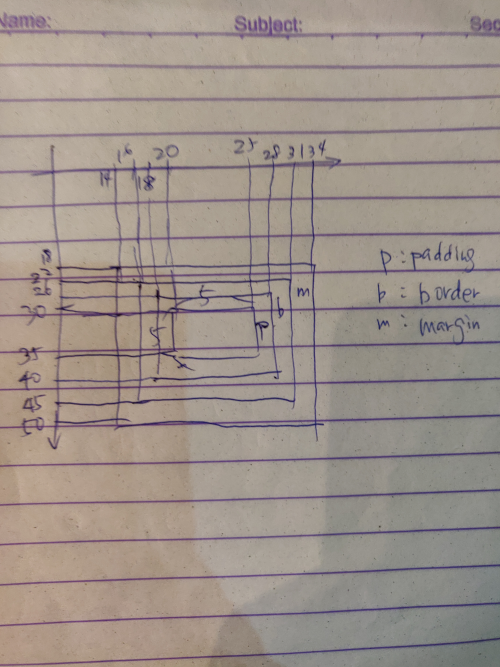 Name: Subject: Sec
16 20 25 28 31 34
14 18
18
26 5 m
30 b
5 p
35
40
45
50
p : padding
b : border
m : margin